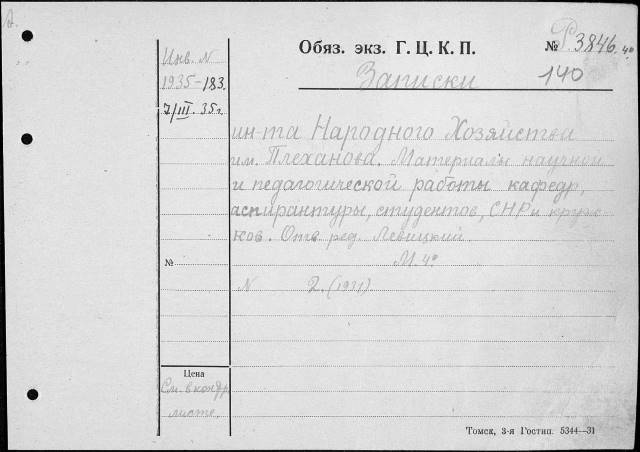 Обяз. экз. Г. Ц. К. П.
№ Р.3846. 4°
140
Записки
Инв. N
1935-183.
7/III. 35г.
ин-та Народного Хозяйства
им. Плеханова. Материалы научной
и педагогической работы кафедр,
аспирантуры, студентов, СНР и круж-
ков. Отв. ред. Левицкий.
М. 4°
№
N 2. (1931)
Цена
См. в кондр
листе.
Томск, 3-я Гостип. 5344—31